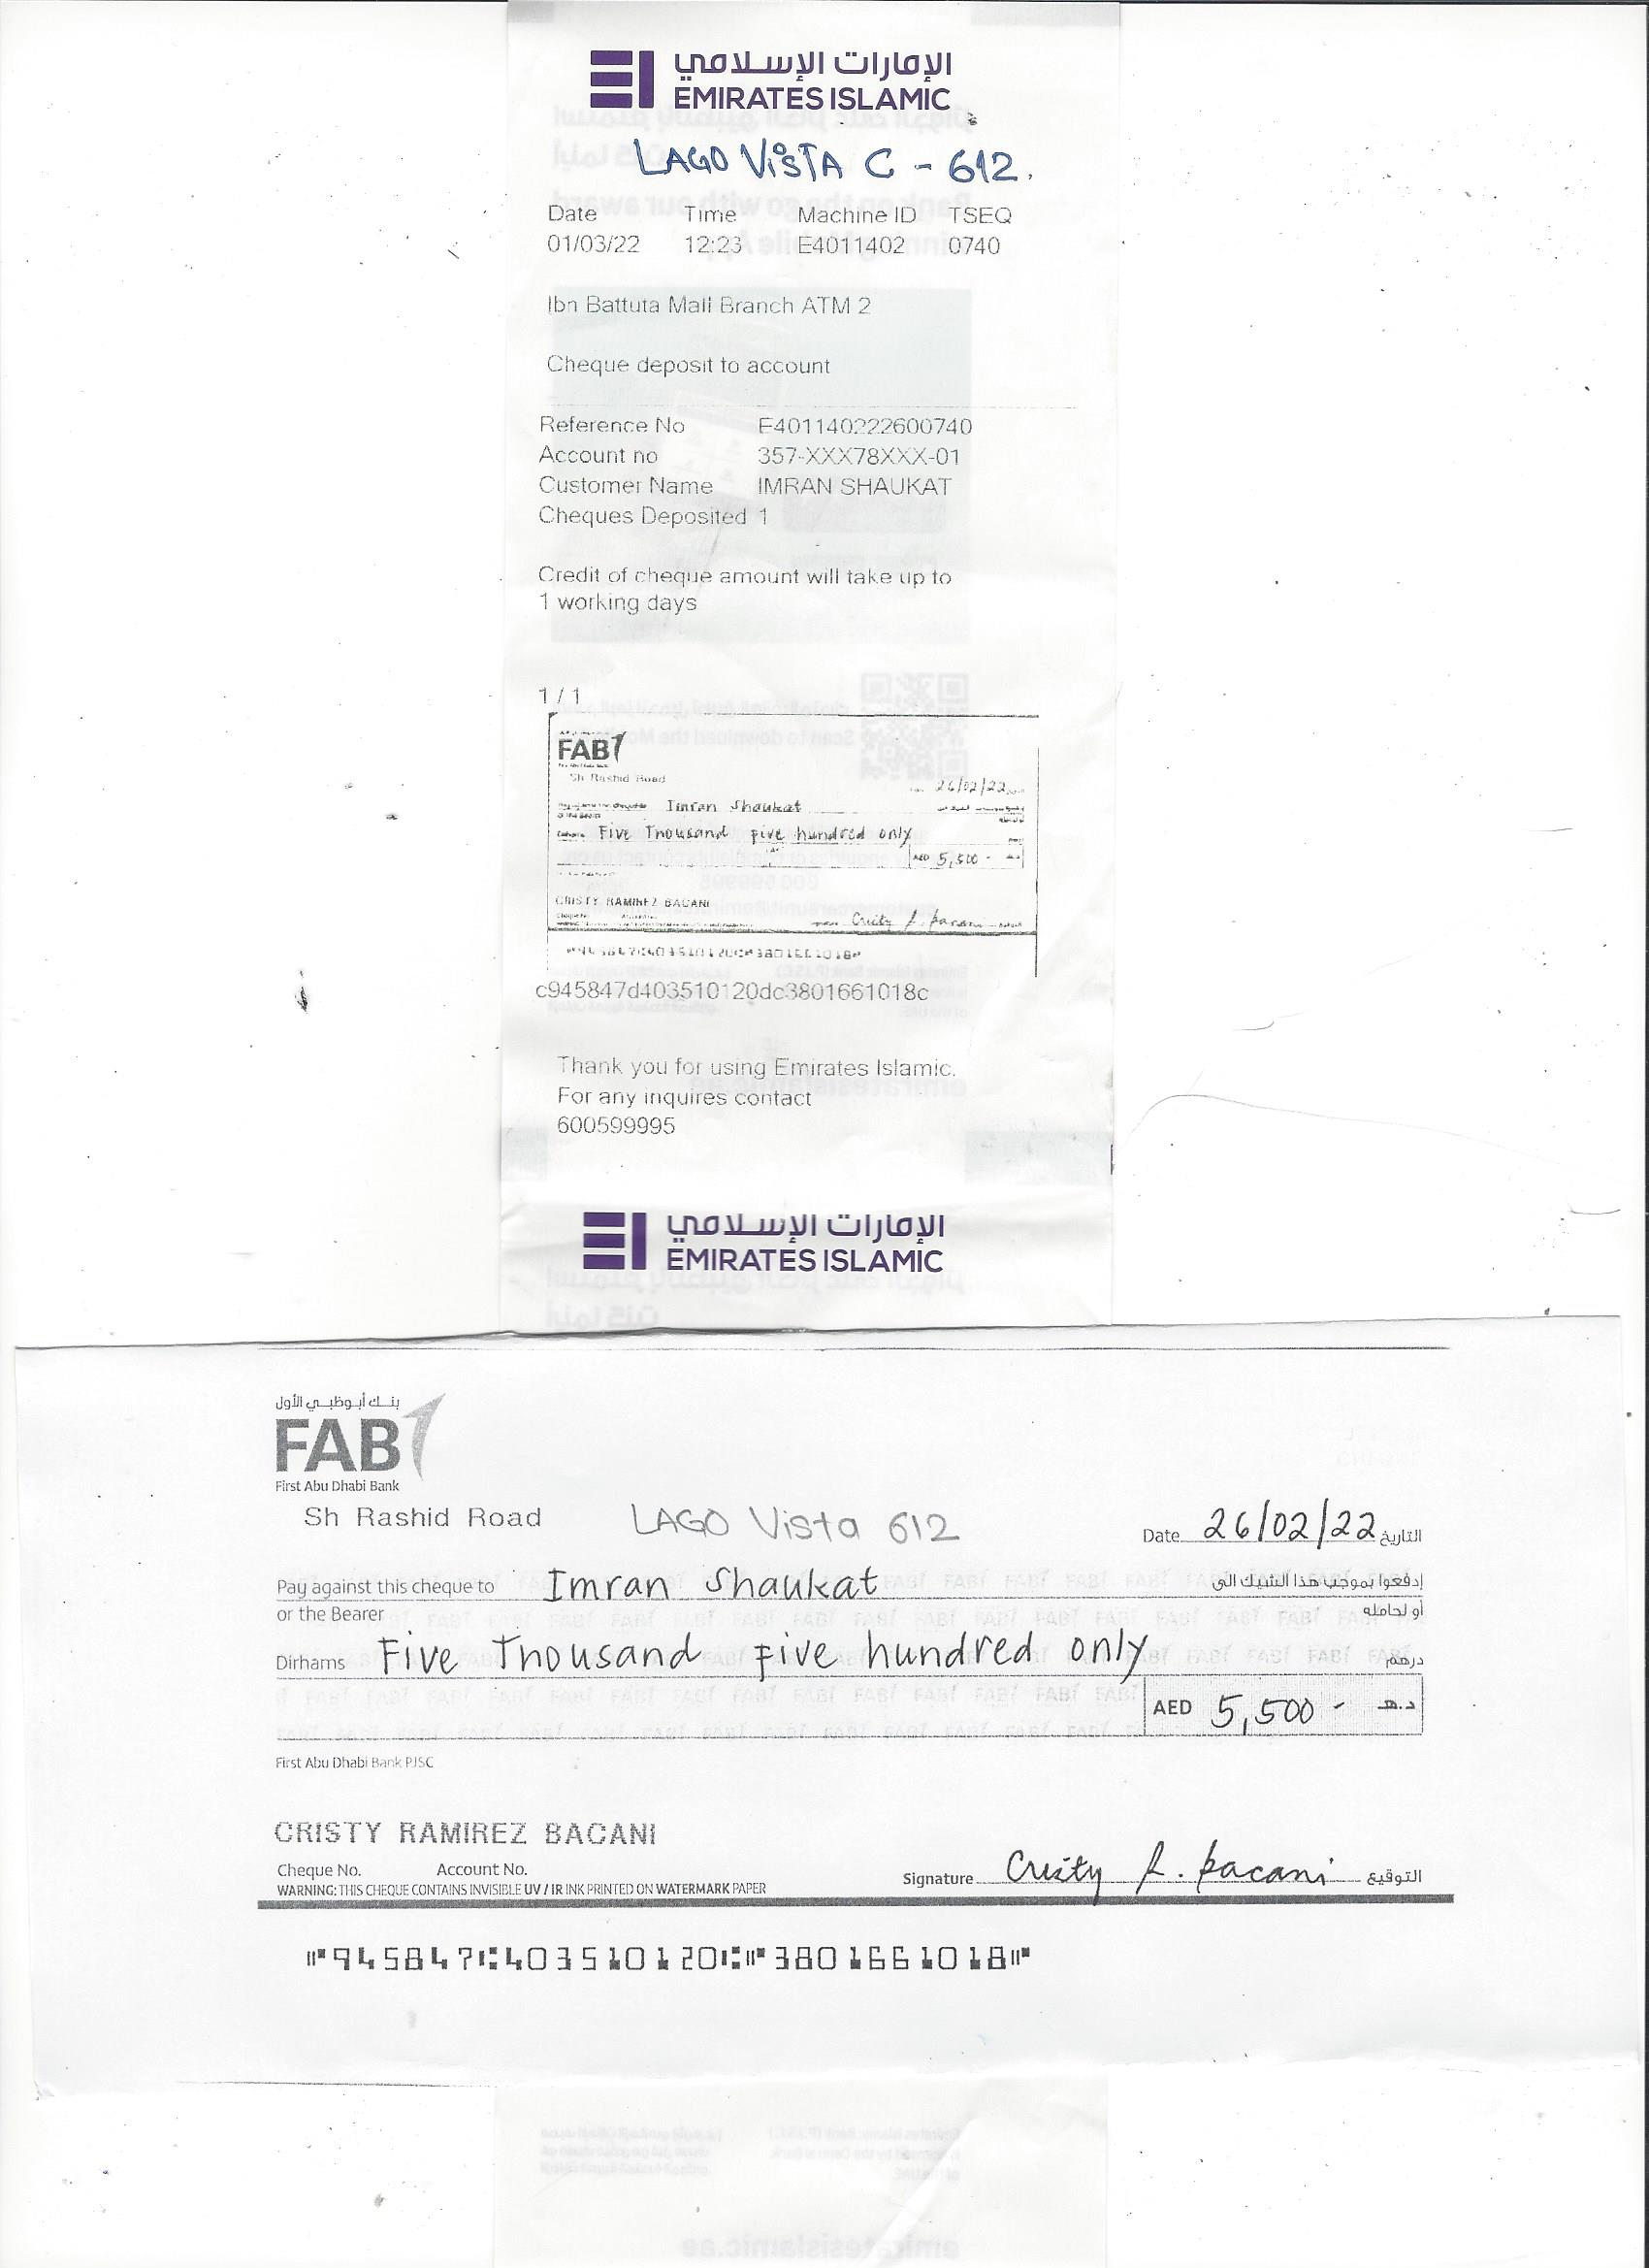 الإمارات الإسلامي
EMIRATES ISLAMIC
LAGO VISTA C - 612.
Date Time Machine ID TSEQ
01/03/22 12:23 E4011402 0740
Ibn Battuta Mall Branch ATM 2
Cheque deposit to account
Reference No E401140222600740
Account no 357-XXX78XXX-01
Customer Name IMRAN SHAUKAT
Cheques Deposited 1
Credit of cheque amount will take up to
1 working days
1 / 1
FAB
Sh Rashid Road
26/02/22
Imran Shaukat
Five Thousand five hundred only
AED 5,500 -
CRISTY RAMIREZ BACANI
Cristy R. Bacani
c945847d403510120dc3801661018c
Thank you for using Emirates Islamic.
For any inquires contact
600599995
الإمارات الإسلامي
EMIRATES ISLAMIC
بنك أبوظبي الأول
FAB
First Abu Dhabi Bank
Sh Rashid Road LAGO Vista 612 Date 26/02/22 التاريخ
Pay against this cheque to Imran Shaukat إدفعوا بموجب هذا الشيك الى
or the Bearer أو لحامله
Dirhams Five Thousand Five hundred only درهم
AED 5,500 - د.هـ
First Abu Dhabi Bank PJSC
CRISTY RAMIREZ BACANI
Cheque No. Account No. Signature Cristy R. Bacani التوقيع
WARNING: THIS CHEQUE CONTAINS INVISIBLE UV / IR INK PRINTED ON WATERMARK PAPER
⑈945847⑆403510120⑆⑈3801661018⑈